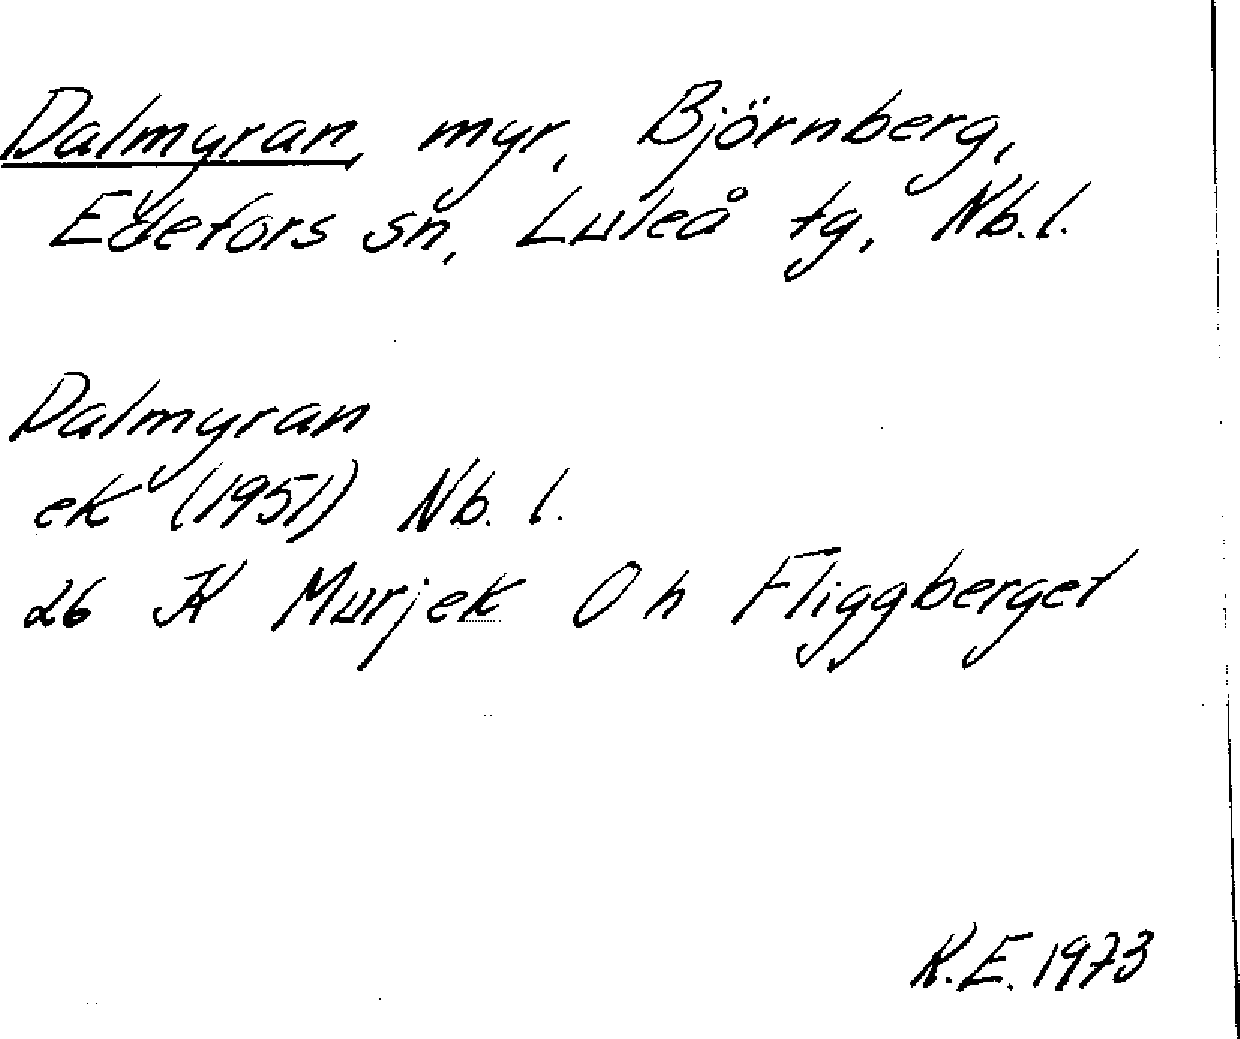 Dalmyran, myr, Björnberg,
Edefors sn, Luleå tg, Nb.l.
Dalmyran
ek (1951) Nb. l.
26 K Murjek Oh Fliggberget
K.E. 1973